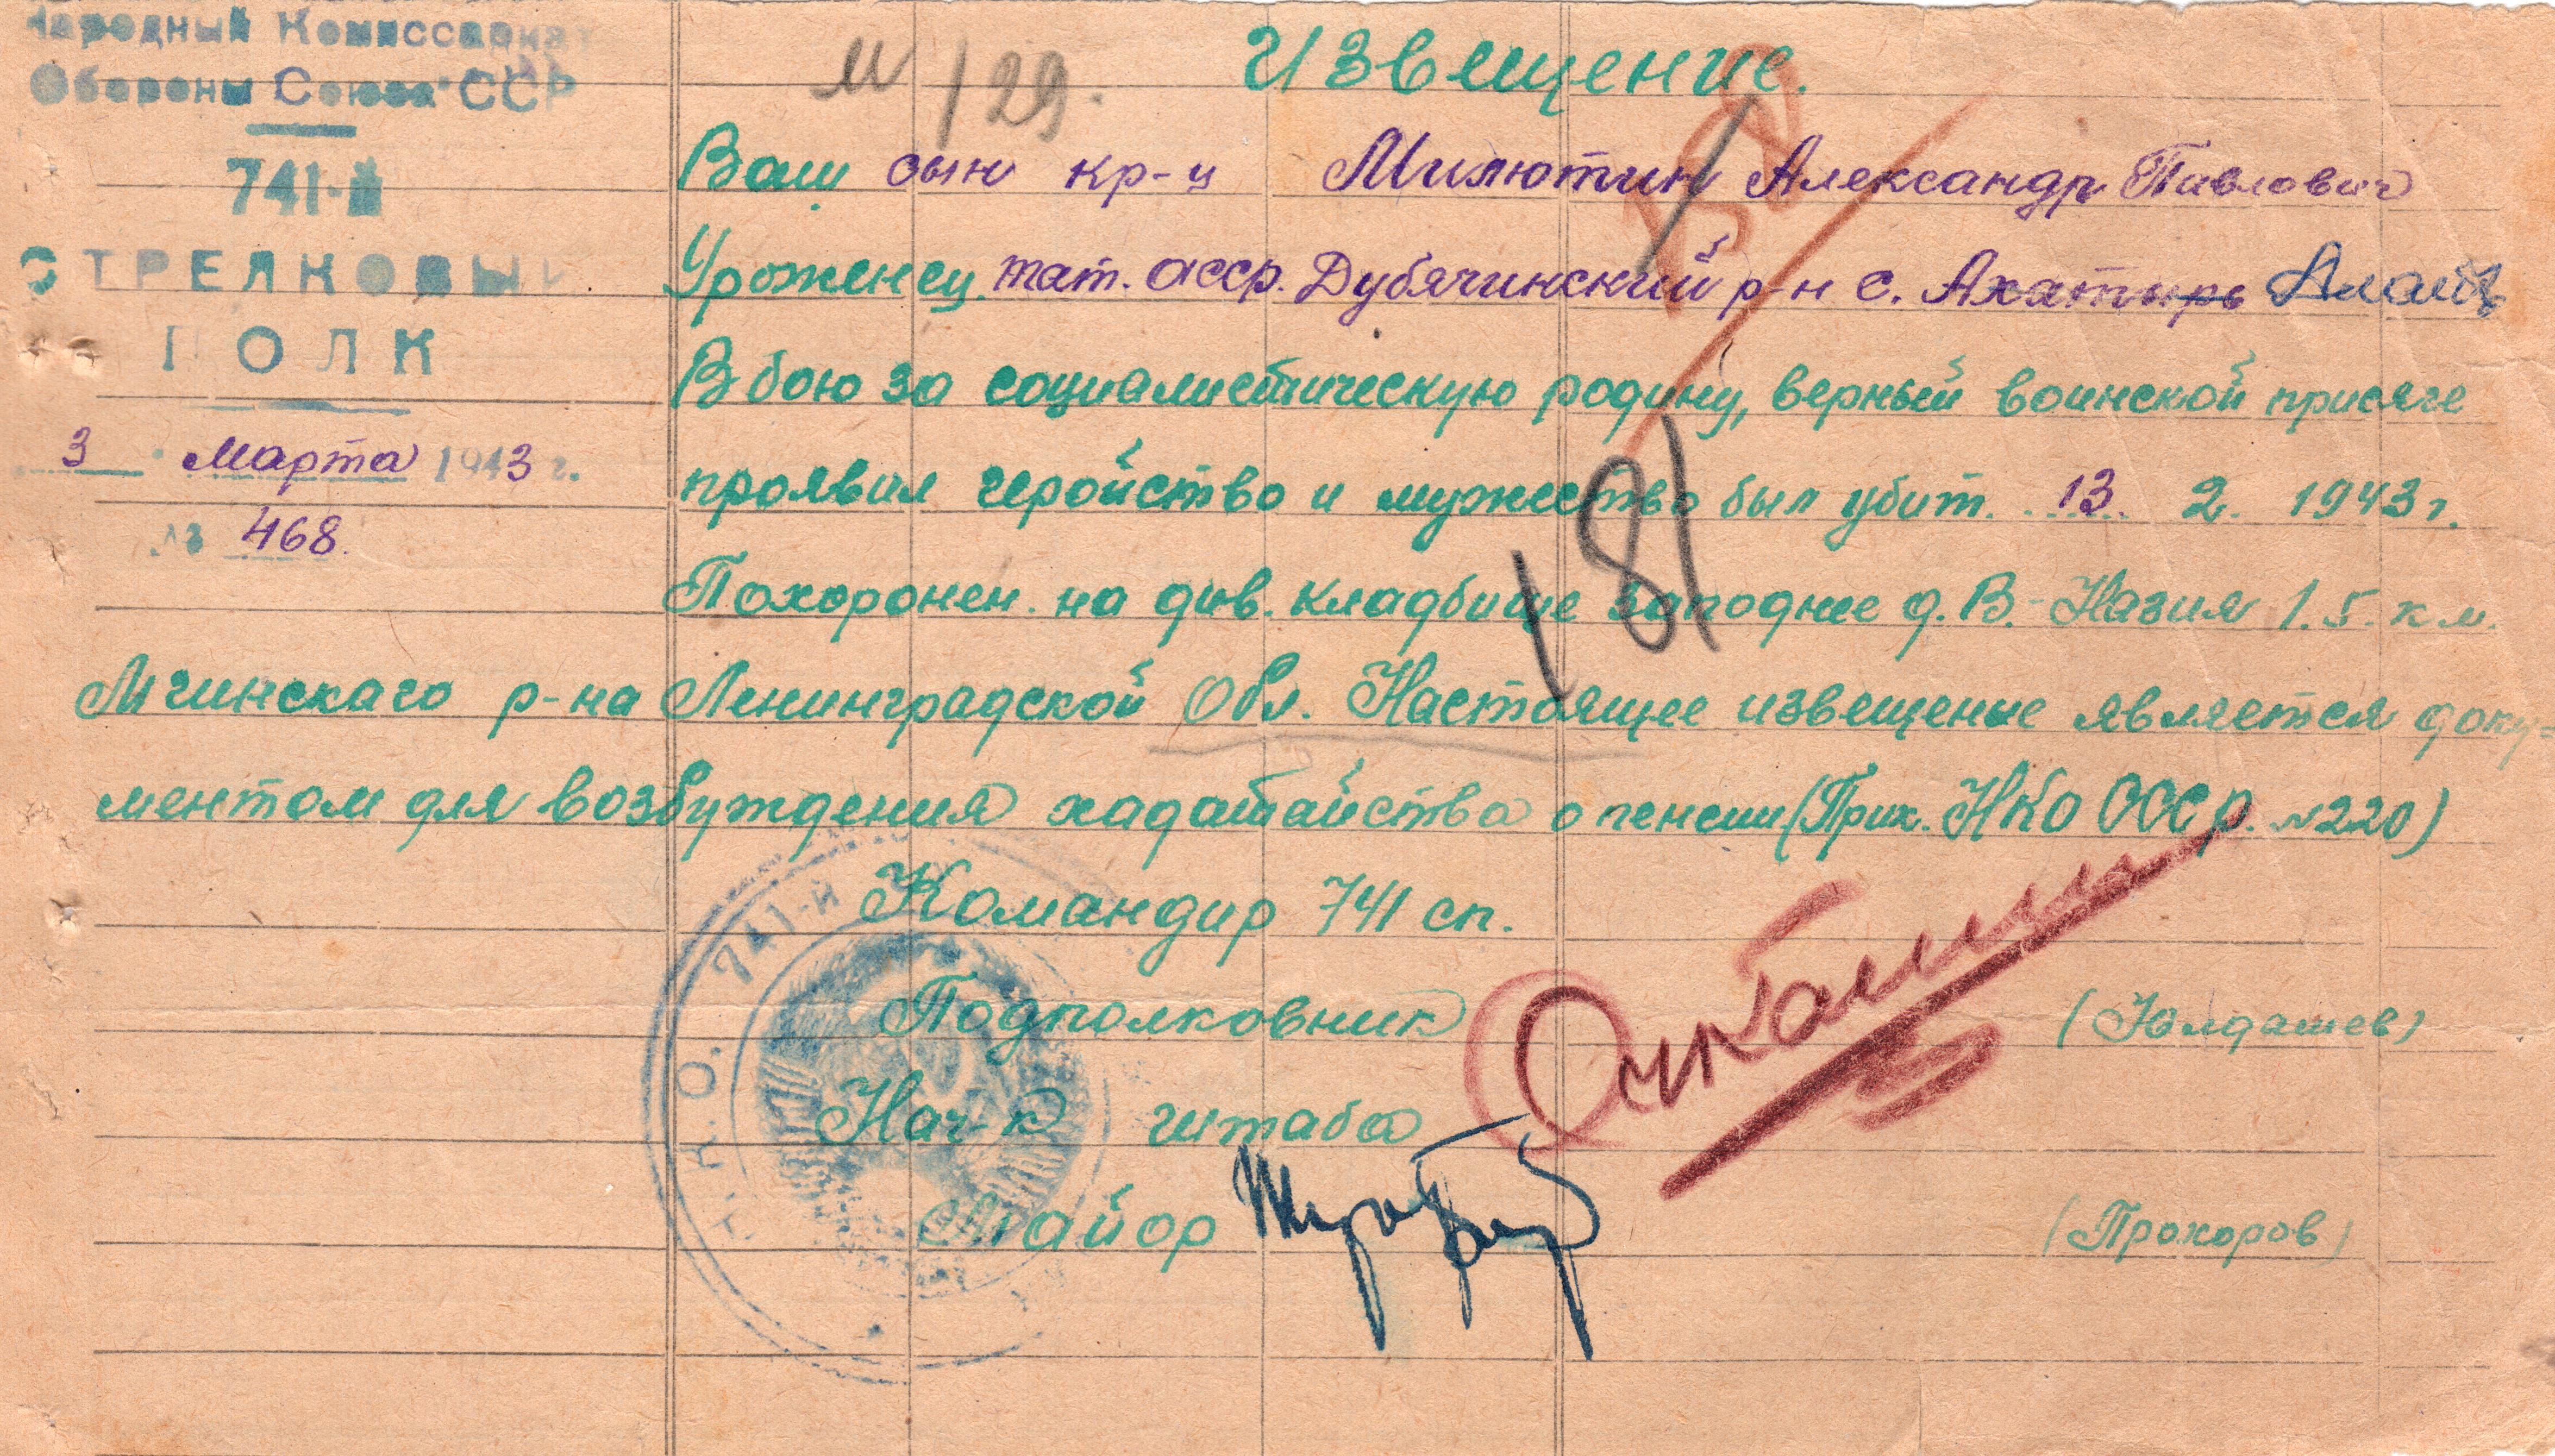 Народный Комиссариат
Обороны Союза ССР
741-й
СТРЕЛКОВЫЙ
ПОЛК
3 Марта 1943 г.
№ 468.
М/129.
Извещение.
Ваш сын кр-ц Милютин Александр Павлович
Уроженец. тат. АССР. Дубячинский р-н с. Ахатырь
В бою за социалистическую родину, верный воинской присяге
проявил геройство и мужество был убит. 13. 2. 1943 г.
Похоронен. на див. кладбище западнее д. В.-Назия 1.5. км.
Мгинскаго р-на Ленинградской Обл. Настоящее извещение является доку=
ментом для возбуждения хадатайства о пенсии (Прик. НКО СССР. №220)
Командир 741 сп.
Подполковник (Юлдашев)
Нач-к штаба
Майор (Прохоров)
181
Н.К.О. 741-й